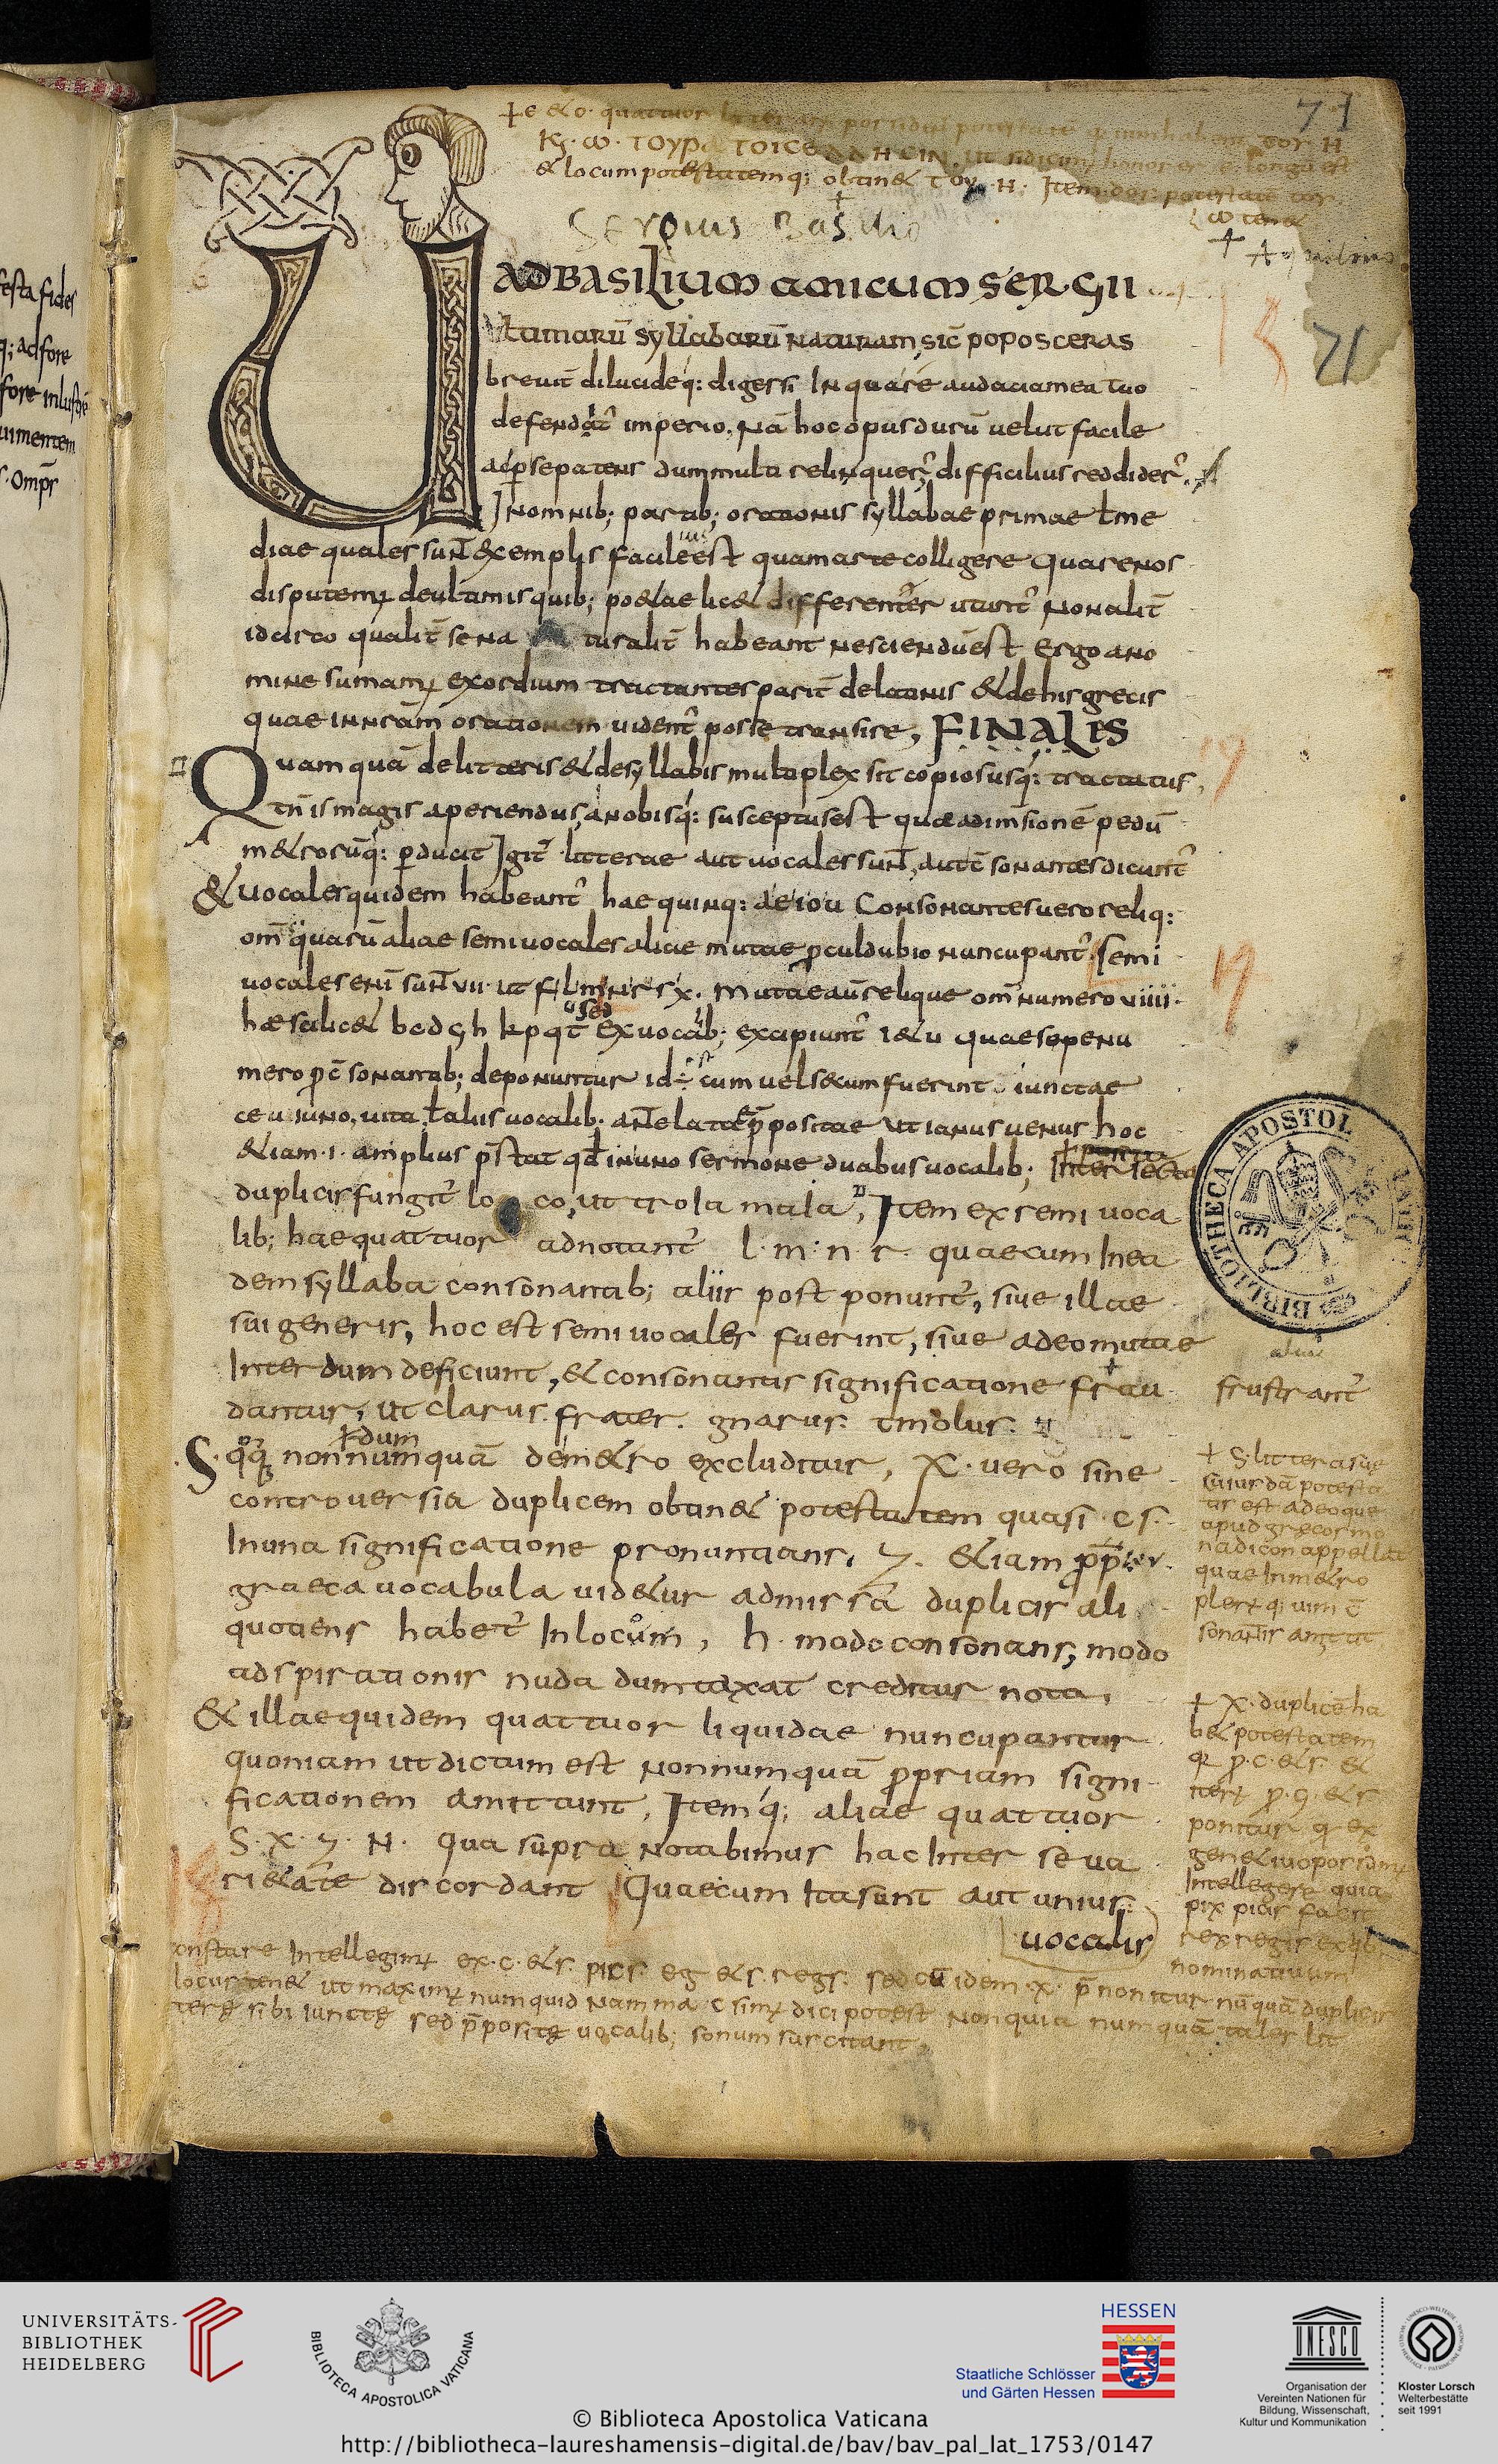 71
+ e & o. quattuor
& locum potestatemq; obtin& TOY. H; Item
Sergius Basilio
ADBASILIUM AMICUM SERGII
71
Ultimarū syllabarū naturam, sic̄ poposceras
breuit̄ dilucideq: digessi In qua re audacia mea tuo
defendat̉ imperio. Nā hoc opus durū uelut facile
ac p̱ se patens dum multa relinquer̉ difficilius reddider̉.
IN omnib; partib; orationis syllabae primae ł me
diae quales sunt̄ exemplis facilius est quam arte colligere Quare nos
disputem; de ultimis quib; po&ae lic& differenter utunt̉ Non alit̄
idcirco qualit̄ se na turalit̄ habeant nesciendū est Ergo a no
mine sumam; exordium tractantes parit̄ de latinis & de his grecis
quae in nr̄am orationem uident̉ posse transire, FINALIS
Quamquā de litteris & de syllabis multiplex sit copiosusq: tractatus,
tn̄ is magis aperiendus, a nobisq: susceptus est qui ad im̄sionē pedū
m&rorūq: p̱ducit Igit̉ litterae aut uocales sunt̄, aut c̄sonantes dicunt̉
& uocales quidem habeant̉ hae quinq: aeiou Consonantes uero reliq:
om̄ quarū aliae semiuocales aliae mutae p̱culdubio nuncupant̉. Semi
uocales enī sunt̄ vii. ut f l m n r s x. Mutae aū relique om̄ numero viiii.
hae scilic& b c d g h k p q t sed Ex uocalib; excipiunt̉ i & u quae sepe nu
mero p̱ c̄sonantib; deponuntur id ÷ cum uel secum fuerint iunctae
ceu iuno, uita ł aliis uocalib; anhelatae p̄positae ut ianus uenus hoc
&iam .i. amplius p̄stat qd̄ in uno sermone duabus uocalib; Inter
duplicis fungit̉ lo co, ut troia maia, Item ex semi uoca
lib; hae quattuor adnotant̉ l. m. n. r. quae cum In ea
dem syllaba consonantib; aliis post ponunt̉, siue illae
sui generis, hoc est semiuocales fuerint, siue adeo mutae
Interdum deficiunt, & consonantis significatione frau
frustrant̉
dantur, ut clarus. frater. gnarus. tmolus.
S. qq; nonnumquā dum de m&ro excluditur, X. uero sine
controuersia duplicem obtin& potestatem quasi c s.
In una significatione pronuntians, z. &iam p̱p̱ter
graeca uocabula uid&ur admissa duplicis ali
quotiens habet̉ In locum, h. modo consonans, modo
adspirationis nuda dumtaxat creditur nota,
& illae quidem quattuor liquidae nuncupantur
quoniam ut dictum est nonnumquā propriam signi
ficationem amittunt, Itemq; aliae quattuor
S. X. z. H. qua supra notabimus hac Inter se ua
ri&ate discordant Quae cum Ita sunt aut unius
uocalis
+ S littera sue
cuiusdā potesta
tis est adeo que
apud grecos mo
nadicon appellat̄
quae In m&ro
pler; q; uim c̄
sonantis
+ X. duplicē ha
b& potestatem
p̱ .c. &s. &
iter; p̱ .g. &s
ponitur
gen&iuo
Intellegere quia
pix picis facit
rex regis
nominatiuum
onstare Intellegim; ex .c. &s. pics. eg &s. regs. sed cū idem .x. p̄ponitur nūquā duplicis
locus ten& ut maxim; numquid nam mac sim; dici potest Non quia numquā tales lit
terę sibi iunctę sed p̄positę uocalib; sonum suscitant,
BIBLIOTHECA APOSTOL
UNIVERSITÄTS-
BIBLIOTHEK
HEIDELBERG
BIBLIOTECA APOSTOLICA VATICANA
HESSEN
Staatliche Schlösser
und Gärten Hessen
UNESCO
Organisation der
Vereinten Nationen für
Bildung, Wissenschaft,
Kultur und Kommunikation
Kloster Lorsch
Welterbestätte
seit 1991
© Biblioteca Apostolica Vaticana
http://bibliotheca-laureshamensis-digital.de/bav/bav_pal_lat_1753/0147